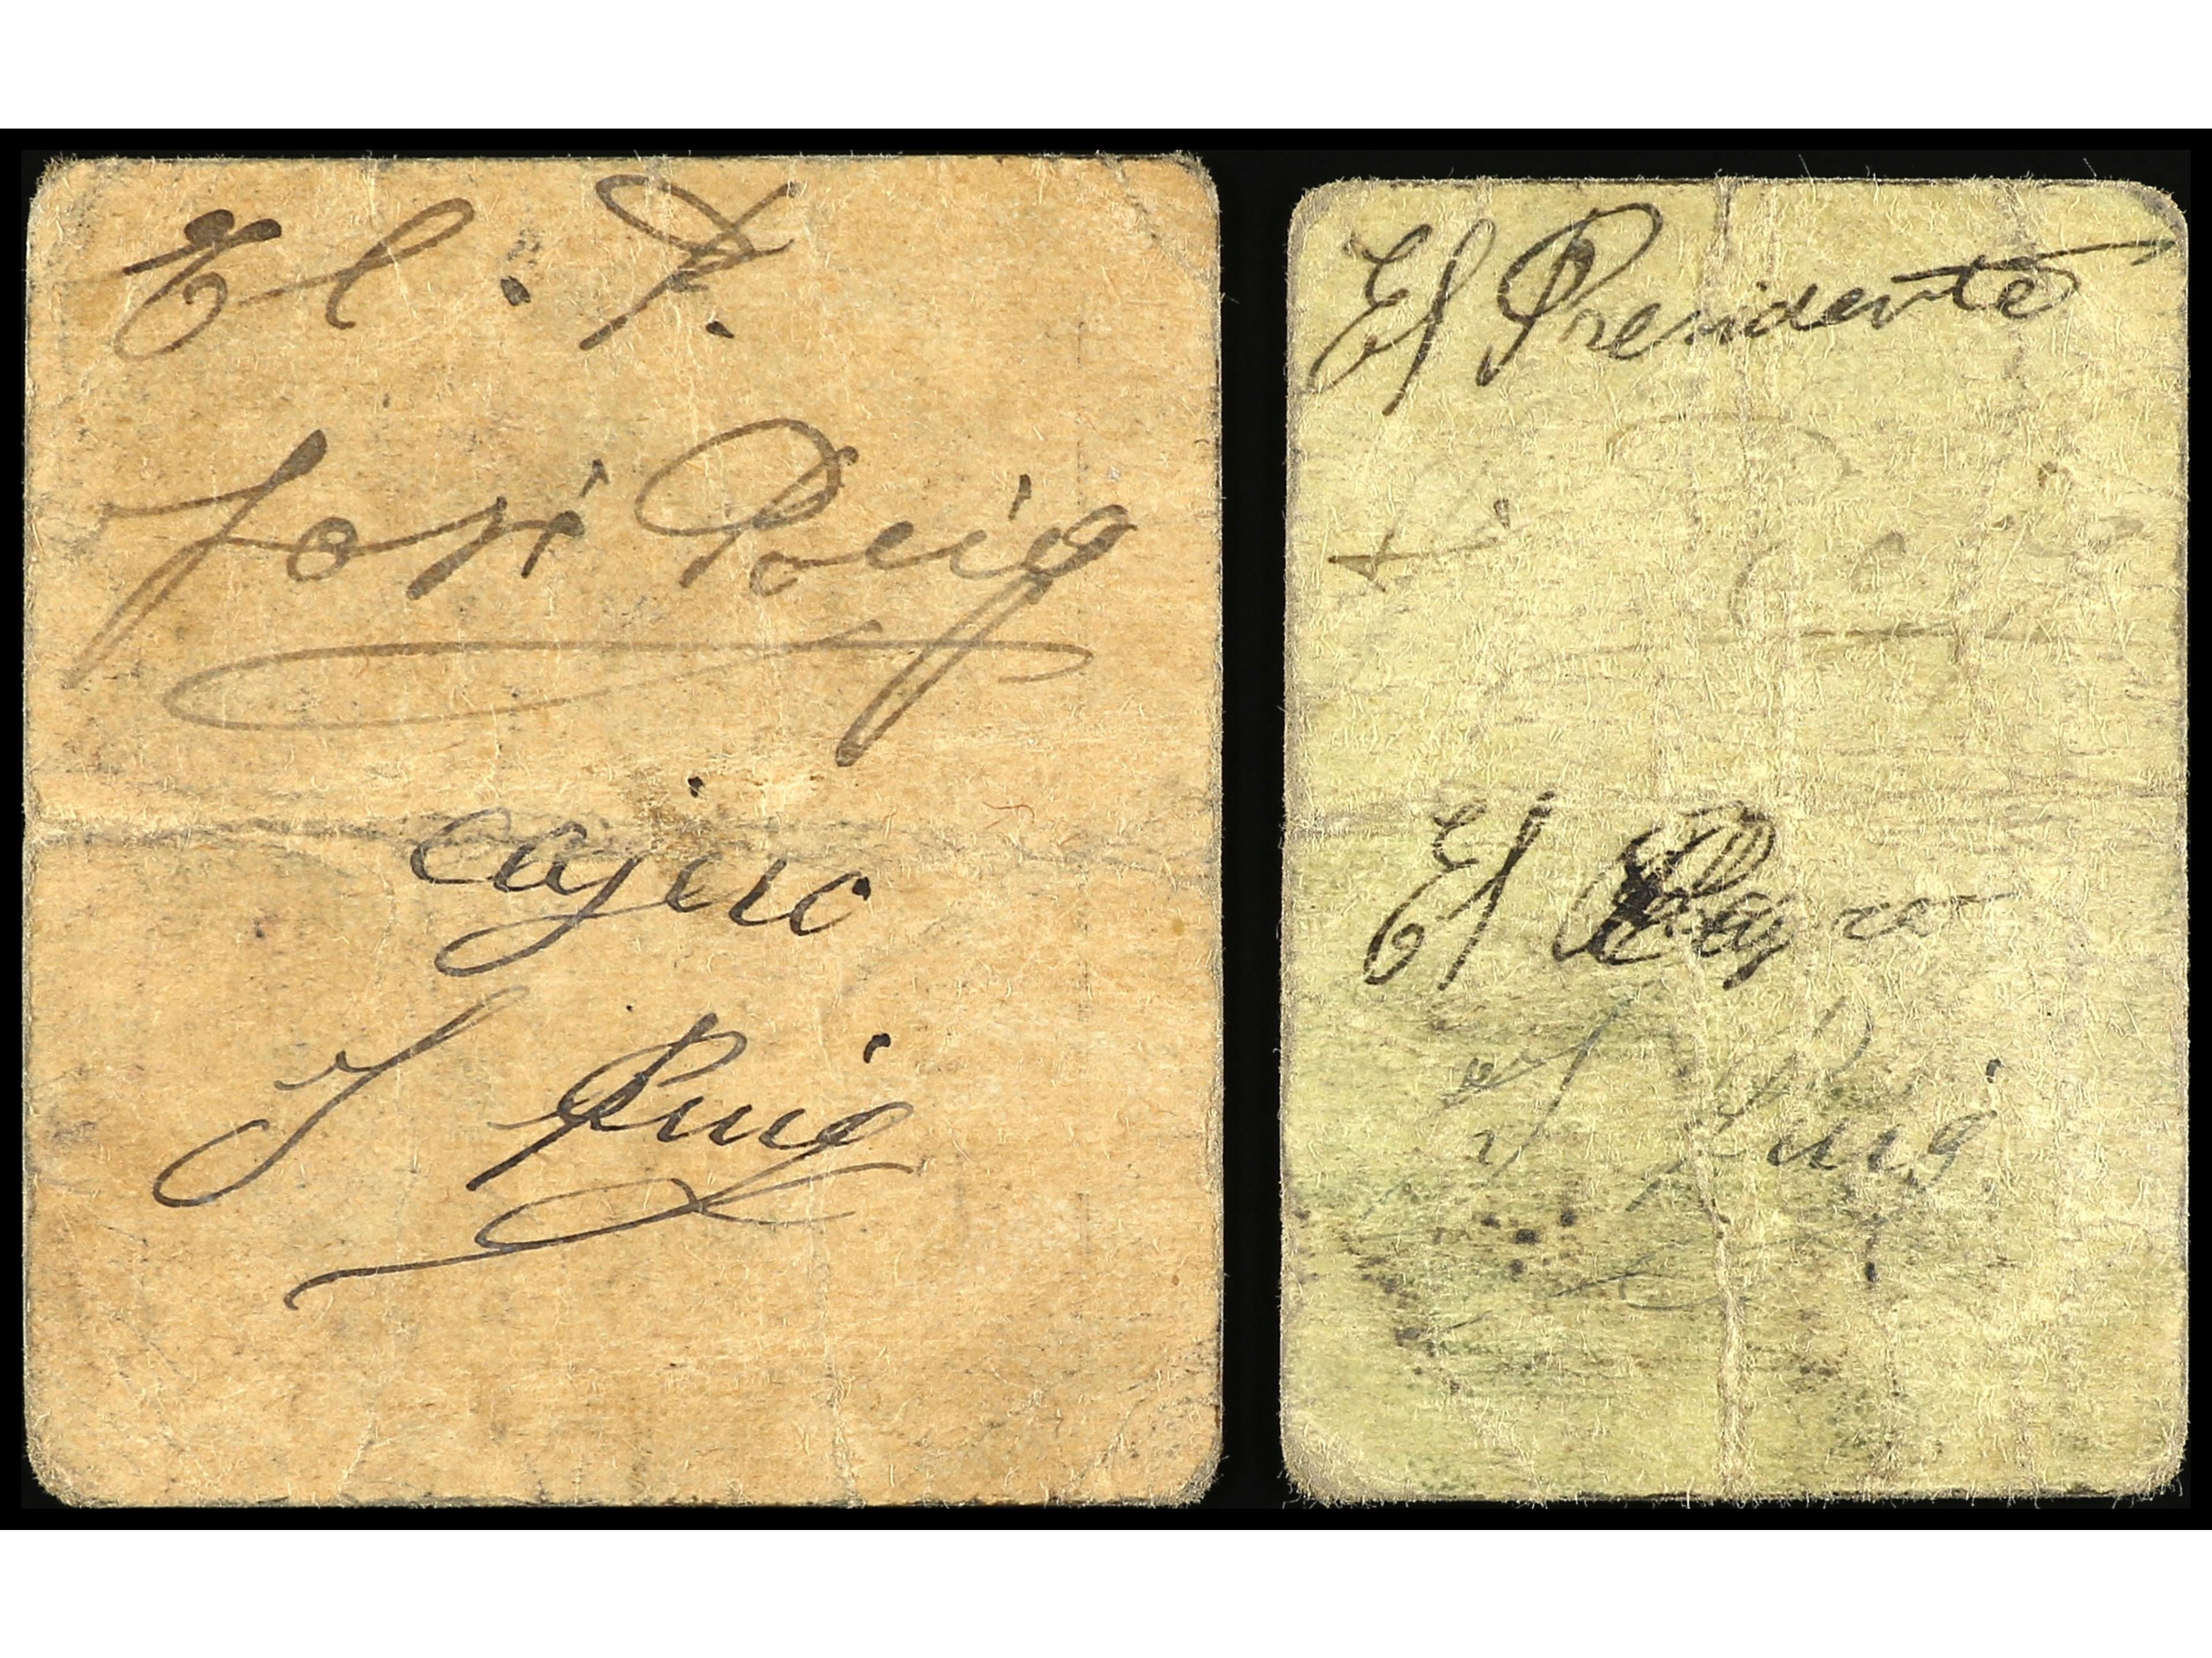 El. P.
José Puig
cajero
J Puig
El Presidente
El Cajero
J Puig